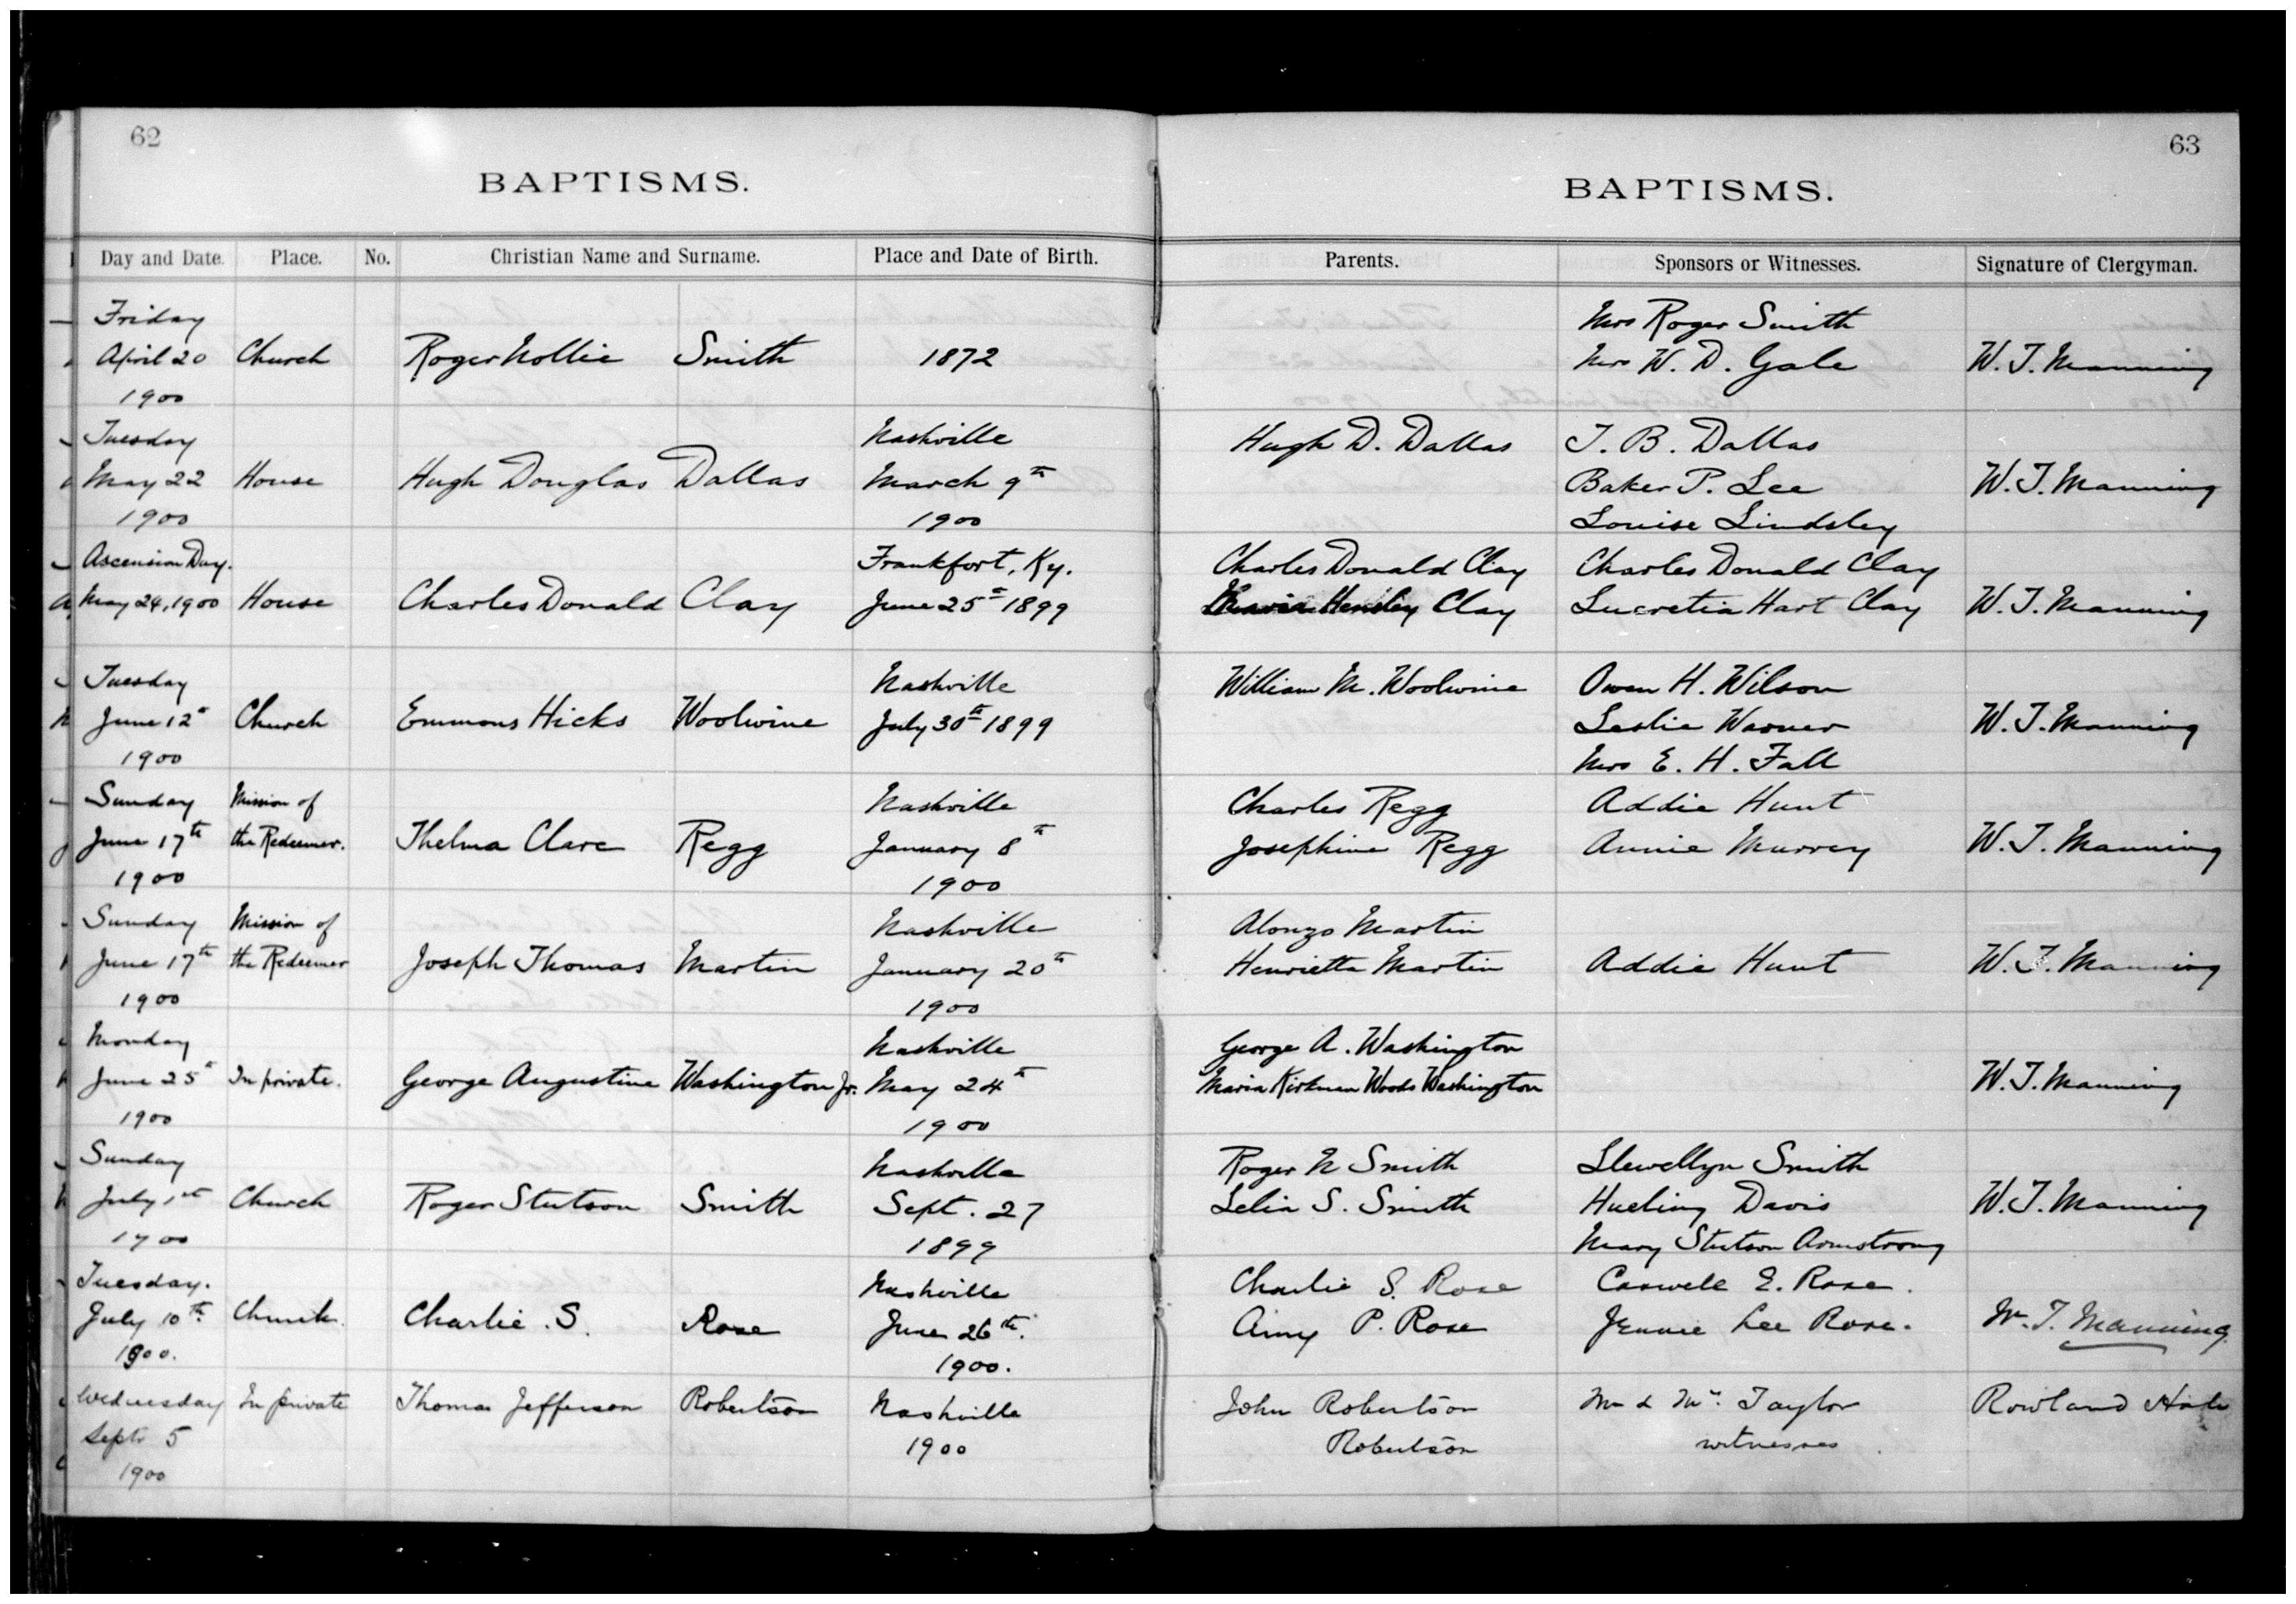 62
BAPTISMS.
Day and Date. Place. No. Christian Name and Surname. Place and Date of Birth.
Friday
April 20 Church Roger Nollie Smith 1872
1900
Tuesday Nashville
May 22 House Hugh Douglas Dallas March 9th
1900 1900
Ascension Day. Frankfort, Ky.
May 24, 1900 House Charles Donald Clay June 25th 1899
Tuesday Nashville
June 12th Church Emmons Hicks Woolwine July 30th 1899
1900
Sunday Mission of Nashville
June 17th the Redeemer. Thelma Clare Regg January 8th
1900 1900
Sunday Mission of Nashville
June 17th the Redeemer Joseph Thomas Martin January 20th
1900 1900
Monday Nashville
June 25th In private. George Augustine Washington Jr. May 24th
1900 1900
Sunday Nashville
July 1st Church Roger Stutson Smith Sept. 27
1900 1899
Tuesday. Nashville
July 10th. Church. Charlie. S. Rose June 26th.
1900. 1900.
Wednesday In private Thomas Jefferson Robertson Nashville
Sept 5 1900
1900
63
BAPTISMS.
Parents. Sponsors or Witnesses. Signature of Clergyman.
Mrs Roger Smith
Mrs W. D. Gale W. T. Manning
Hugh D. Dallas T. B. Dallas
Baker P. Lee W. T. Manning
Louise Lindsley
Charles Donald Clay Charles Donald Clay
Maria Hensley Clay Lucretia Hart Clay W. T. Manning
William M. Woolwine Owen H. Wilson
Leslie Warner W. T. Manning
Mrs E. H. Fall
Charles Regg Addie Hunt
Josephine Regg Annie Murrey W. T. Manning
Alonzo Martin
Henrietta Martin Addie Hunt W. T. Manning
George A. Washington
Maria Kirkman Woods Washington W. T. Manning
Roger N Smith Llewellyn Smith
Lelia S. Smith Hueling Davis W. T. Manning
Mary Stutson Armstrong
Charlie S. Rose Caswell E. Rose.
Amy P. Rose Jennie Lee Rose. Wm. T. Manning
John Robertson Mr & Mrs Taylor Rowland Hale
Robertson witnesses